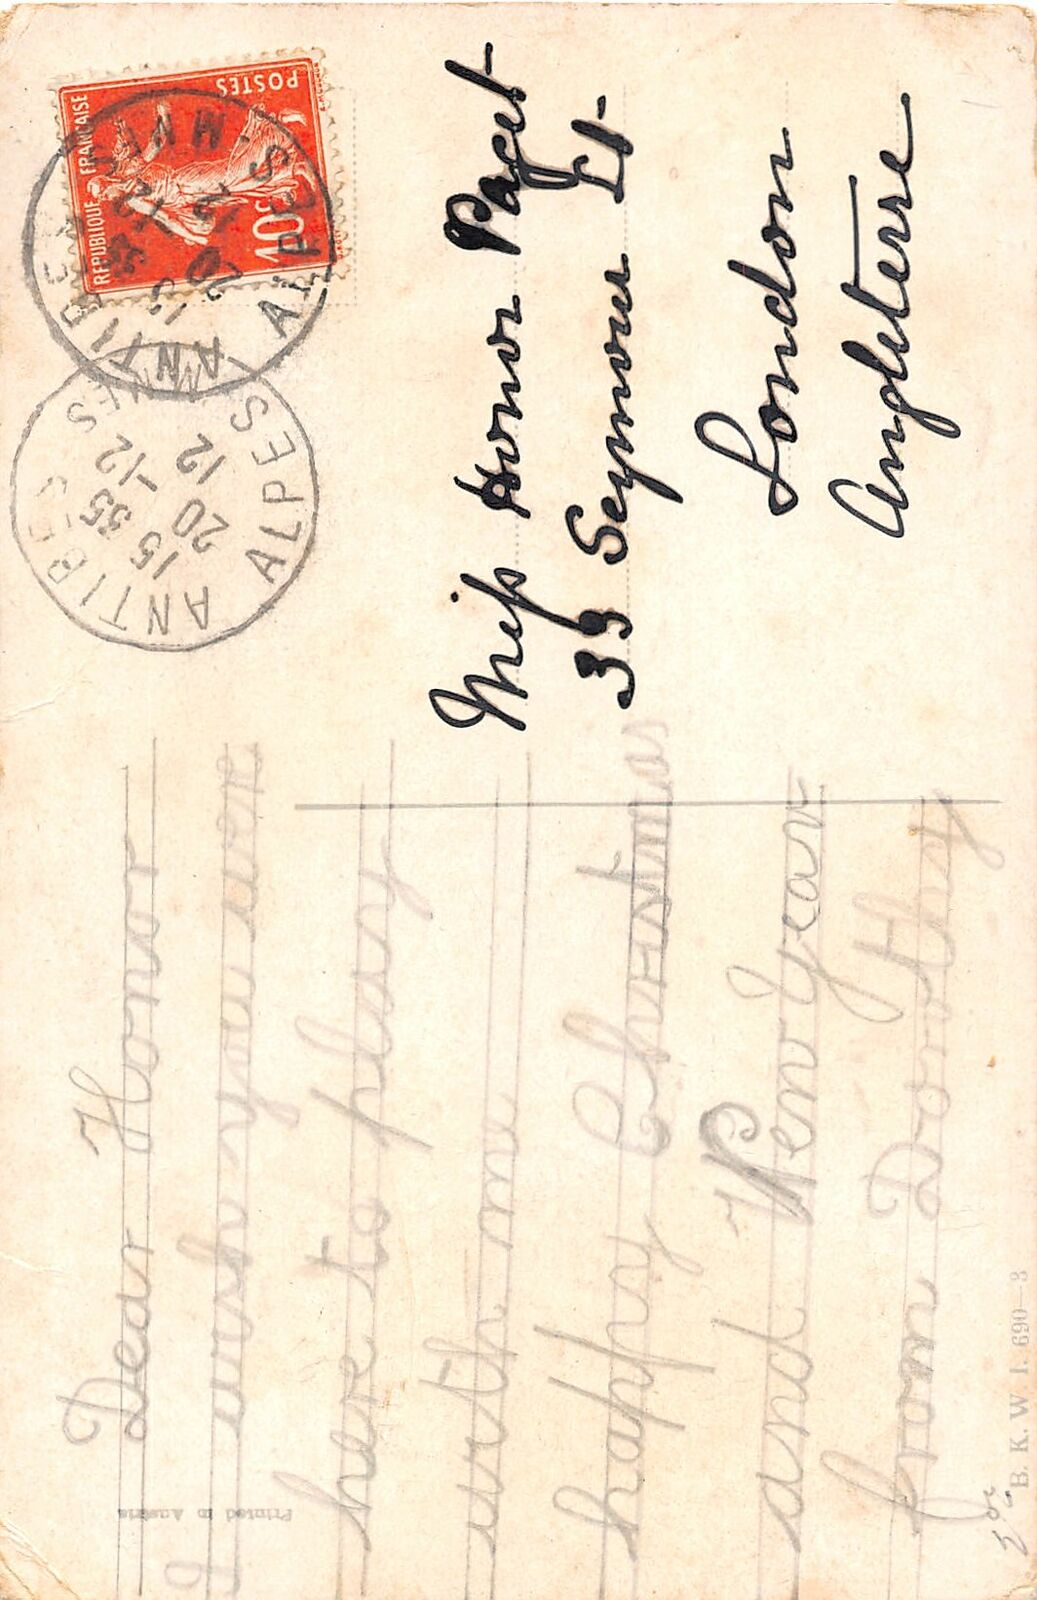 Dear Honor
I wish you were
here to play
with me
happy Christmas
and New Year
from Dorothy
Miss Honor Paget
39 Seymour St
London
Angleterre
REPUBLIQUE FRANÇAISE
POSTES
10c
ANTIBES
ALPES MMES
15 35
20 -12
12
ANTIBES
ALPES MMES
20 -12
12
Printed in Austria
B. K. W. I. 690-3